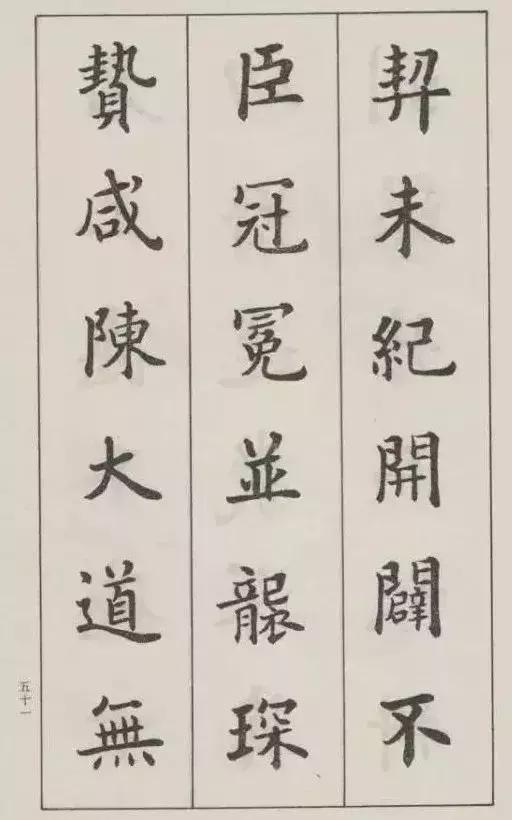 契未紀開闢不
臣冠冕並襲琛
贄咸陳大道無
五十一